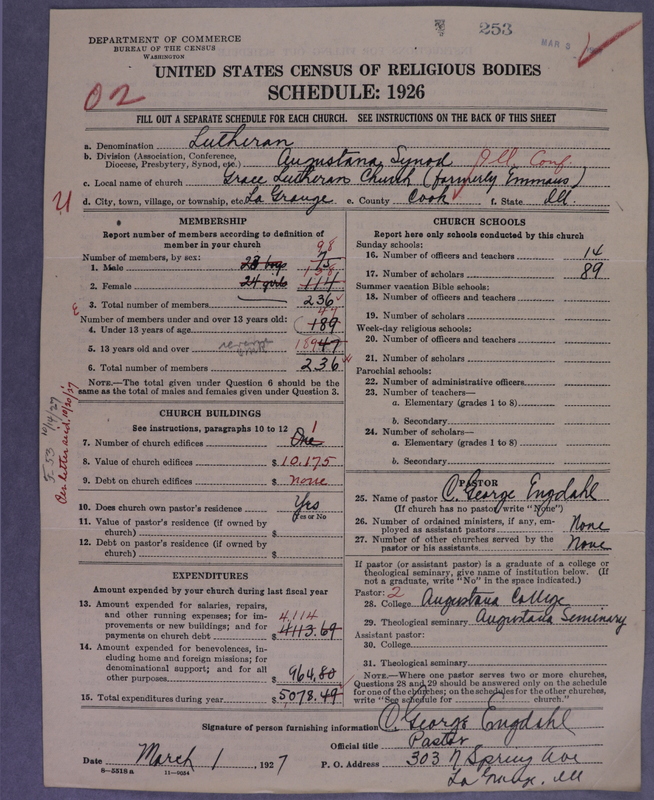 DEPARTMENT OF COMMERCE
BUREAU OF THE CENSUS
WASHINGTON
253
MAR 8
UNITED STATES CENSUS OF RELIGIOUS BODIES
SCHEDULE: 1926
02
FILL OUT A SEPARATE SCHEDULE FOR EACH CHURCH. SEE INSTRUCTIONS ON THE BACK OF THIS SHEET
a. Denomination Lutheran
b. Division (Association, Conference, Diocese, Presbytery, Synod, etc.) Augustana Synod Ill. Conf
c. Local name of church Grace Lutheran Church (formerly Emmaus)
d. City, town, village, or township, etc. La Grange e. County Cook f. State Ill.
MEMBERSHIP
Report number of members according to definition of member in your church
Number of members, by sex:
98
1. Male 23 boys 75
138
2. Female 24 girls 114
3. Total number of members 236
Number of members under and over 13 years old:
47
4. Under 13 years of age 189
5. 13 years old and over 189 47
6. Total number of members 236
NOTE.—The total given under Question 6 should be same as the total of males and females given under Question 3.
CHURCH BUILDINGS
See instructions, paragraphs 10 to 12
7. Number of church edifices One 1
8. Value of church edifices $ 10,175
9. Debt on church edifices $ none
10. Does church own pastor's residence? Yes
Yes or No
11. Value of pastor's residence (if owned by church) $
12. Debt on pastor's residence (if owned by church) $
EXPENDITURES
Amount expended by your church during last fiscal year
13. Amount expended for salaries, repairs, and other running expenses; for improvements or new buildings; and for payments on church debt $ 4113.69
4,114
14. Amount expended for benevolences, including home and foreign missions; for denominational support; and for all other purposes $ 964,80
15. Total expenditures during year $ 5078.49
10/19/27
Per letter recd. 10/20/27
CHURCH SCHOOLS
Report here only schools conducted by this church
Sunday schools:
16. Number of officers and teachers 14
17. Number of scholars 89
Summer vacation Bible schools:
18. Number of officers and teachers
19. Number of scholars
Week-day religious schools:
20. Number of officers and teachers
21. Number of scholars
Parochial schools:
22. Number of administrative officers
23. Number of teachers—
a. Elementary (grades 1 to 8)
b. Secondary
24. Number of scholars—
a. Elementary (grades 1 to 8)
b. Secondary
PASTOR
25. Name of pastor C. George Engdahl
(If church has no pastor write "None")
26. Number of ordained ministers, if any, employed as assistant pastors None
27. Number of other churches served by the pastor or his assistants None
If pastor (or assistant pastor) is a graduate of a college or theological seminary, give name of institution below. (If not a graduate, write "No" in the space indicated.)
Pastor: 2
28. College Augustana College
29. Theological seminary Augustana Seminary
Assistant pastor:
30. College
31. Theological seminary
NOTE.—Where one pastor serves two or more churches, Questions 28 and 29 should be answered only on the schedule for one of the churches; on the schedules for the other churches, write "See schedule for ______ church."
Signature of person furnishing information C. George Engdahl
Official title Pastor
Date March 1, 1927 P. O. Address 303 N Spring Ave
La Grange, Ill
8-5518a 11-9034